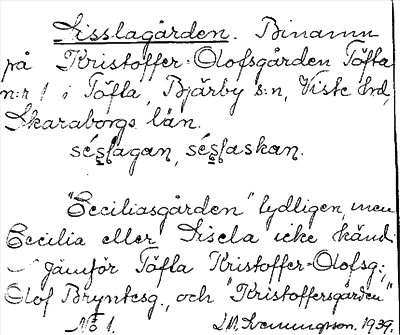 Sisslagården. Binamn
på Kristoffer-Olofsgården Töfta
n:r 1 i Töfta, Bjärby s:n, Viste hd,
Skaraborgs län.
séslagan, séslaskan.
"Ceciliasgården" tydligen, men
Cecilia eller Sisela icke känd
jämför Töfta Kristoffer-Olofsg.,
Olof Bryntesg., och "Kristoffersgården"
No 1. 1939.